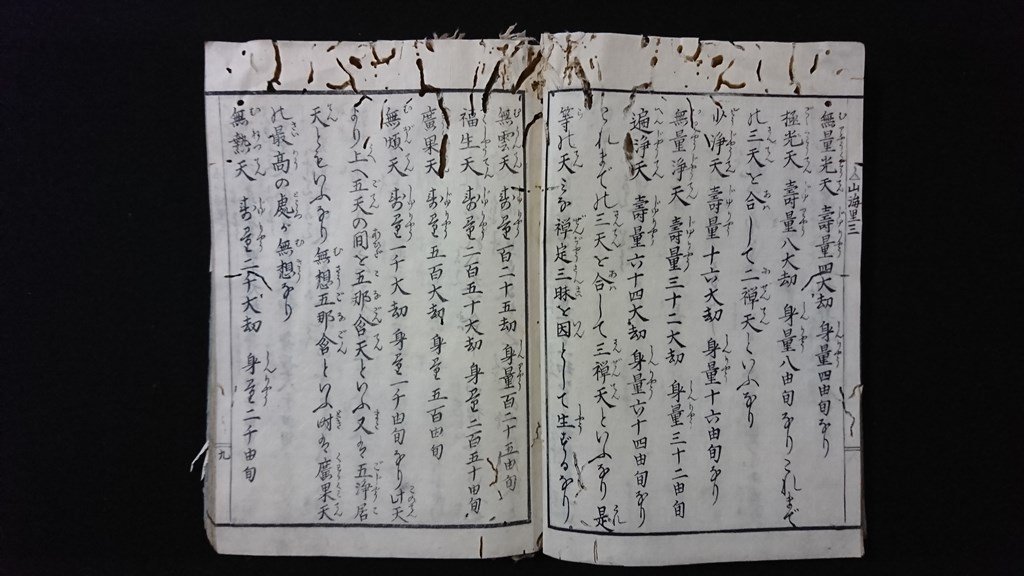 無量光天 壽量四大劫 身量四由旬なり
極光天 壽量八大劫 身量八由旬なり これまで
の三天を合して二禅天といふなり
少淨天 壽量十六大劫 身量十六由旬なり
無量淨天 壽量三十二大劫 身量三十二由旬
遍淨天 壽量六十四大劫 身量六十四由旬なり
これまでの三天を合して三禅天といふなり 是
等の天はみな禅定三昧を因として生ずるなり
無雲天 壽量百二十五劫 身量百二十五由旬
福生天 壽量二百五十大劫 身量二百五十由旬
廣果天 壽量五百大劫 身量五百由旬
無煩天 壽量一千大劫 身量一千由旬なり 此天
より上へ五天の間を五那含天といふ又は五淨居
天ともいふなり 無想五那含といふ時は廣果天
の最高の處が無想なり
無熱天 壽量二千大劫 身量二千由旬
山海里三
九